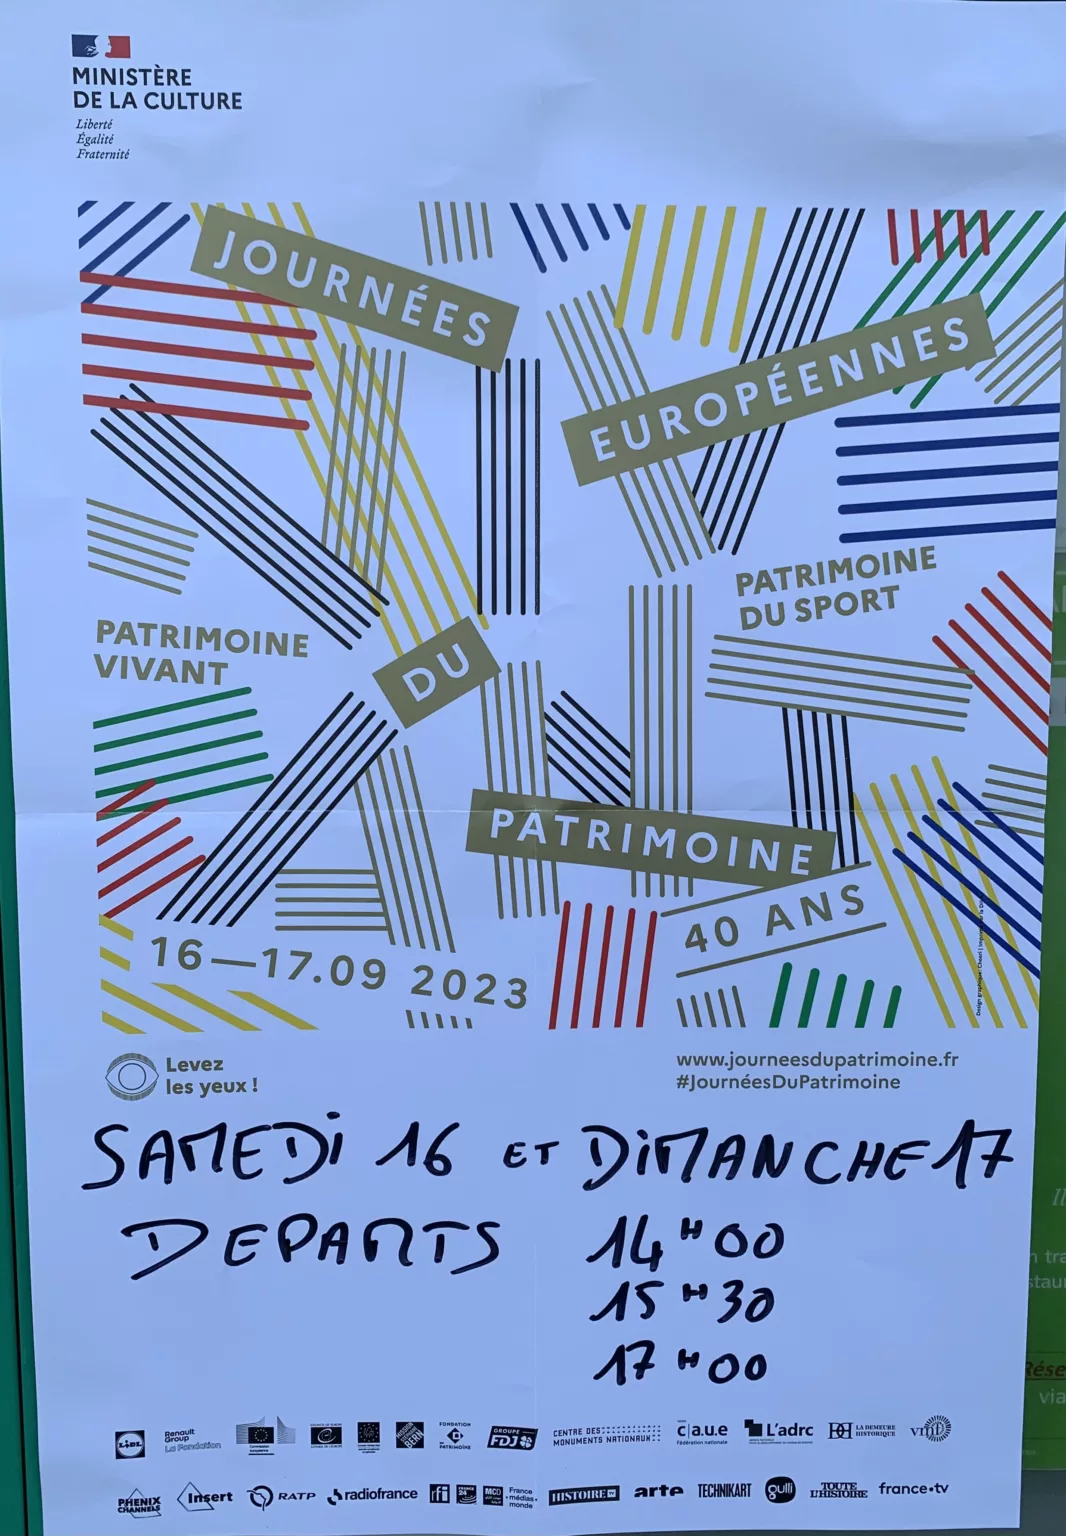 MINISTÈRE
DE LA CULTURE
Liberté
Égalité
Fraternité
JOURNÉES
EUROPÉENNES
PATRIMOINE
DU SPORT
PATRIMOINE
VIVANT
DU
PATRIMOINE
40 ANS
16—17.09 2023
Levez
les yeux !
www.journeesdupatrimoine.fr
#JournéesDuPatrimoine
SAMEDI 16 ET DIMANCHE 17
DEPARTS 14H00
15H30
17H00
LIDL
Renault
Group
La Fondation
FONDATION
PATRIMOINE
GROUPE
FDJ
CENTRE DES
MONUMENTS NATIONAUX
c|a.u.e
Fédération nationale
L'adrc
LA DEMEURE
HISTORIQUE
vmf
PHENIX
CHANNELS
Insert
RATP
radiofrance
rfi
FRANCE
24
MCD
France
médias
monde
HISTOIRE TV
arte
TECHNIKART
gulli
TOUTE
L'HISTOIRE
france•tv
Rése
via